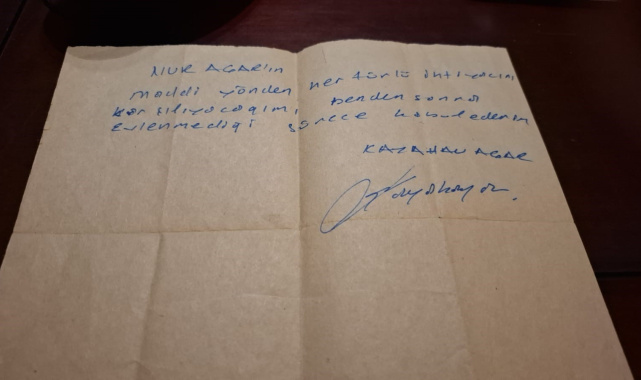 NUR AGAR'ın
maddi yönden her türlü ihtiyacını
karşılıyacağım, benden sonra
evlenmediği sürece kabul ederim
KAYAHAN AGAR